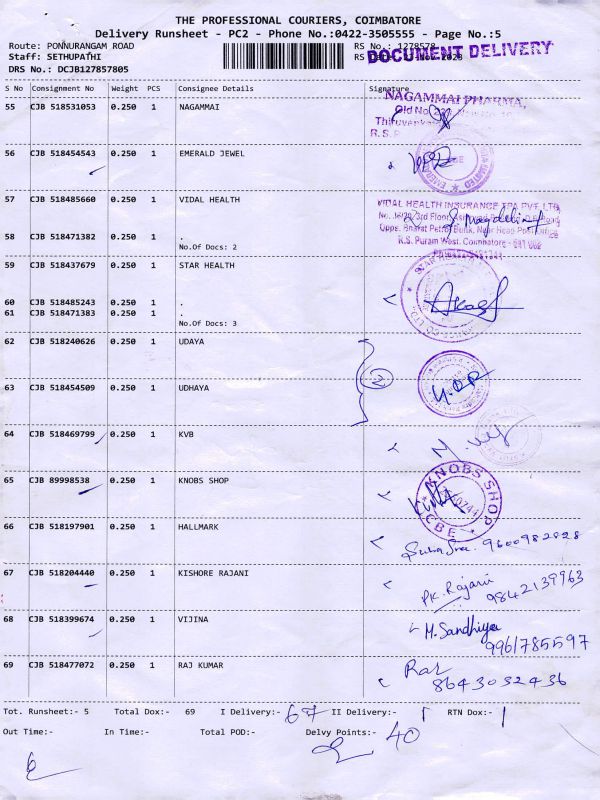 THE PROFESSIONAL COURIERS, COIMBATORE
Delivery Runsheet - PC2 - Phone No.:0422-3505555 - Page No.:5
Route: PONNURANGAM ROAD
RS No.: 1278578
Staff: SETHUPATHI
DOCUMENT DELIVERY
DRS No.: DCJB127857805
S No Consignment No Weight PCS Consignee Details Signature
55 CJB 518531053 0.250 1 NAGAMMAI
NAGAMMAI PHARMA,
Old No.
R.S.P
56 CJB 518454543 0.250 1 EMERALD JEWEL
57 CJB 518485660 0.250 1 VIDAL HEALTH
VIDAL HEALTH INSURANCE TPA PVT. LTD
3rd Floor
Opps. Bharat Petrol Bunk, Near Head Post Office
R.S. Puram West, Coimbatore - 641 002
58 CJB 518471382 0.250 1 .
No.Of Docs: 2
59 CJB 518437679 0.250 1 STAR HEALTH
60 CJB 518485243 0.250 1 .
61 CJB 518471383 0.250 1 .
No.Of Docs: 3
62 CJB 518240626 0.250 1 UDAYA
2
63 CJB 518454509 0.250 1 UDHAYA
64 CJB 518469799 0.250 1 KVB
65 CJB 89998538 0.250 1 KNOBS SHOP
KNOBS SHOP
CBE
66 CJB 518197901 0.250 1 HALLMARK
9600982828
67 CJB 518204440 0.250 1 KISHORE RAJANI
PK. Rajani
9842139963
68 CJB 518399674 0.250 1 VIJINA
M. Sandhiya
9961785597
69 CJB 518477072 0.250 1 RAJ KUMAR
8643032436
Tot. Runsheet:- 5 Total Dox:- 69 I Delivery:- 67 II Delivery:- 1 RTN Dox:- 1
Out Time:- In Time:- Total POD:- Delvy Points:- 40